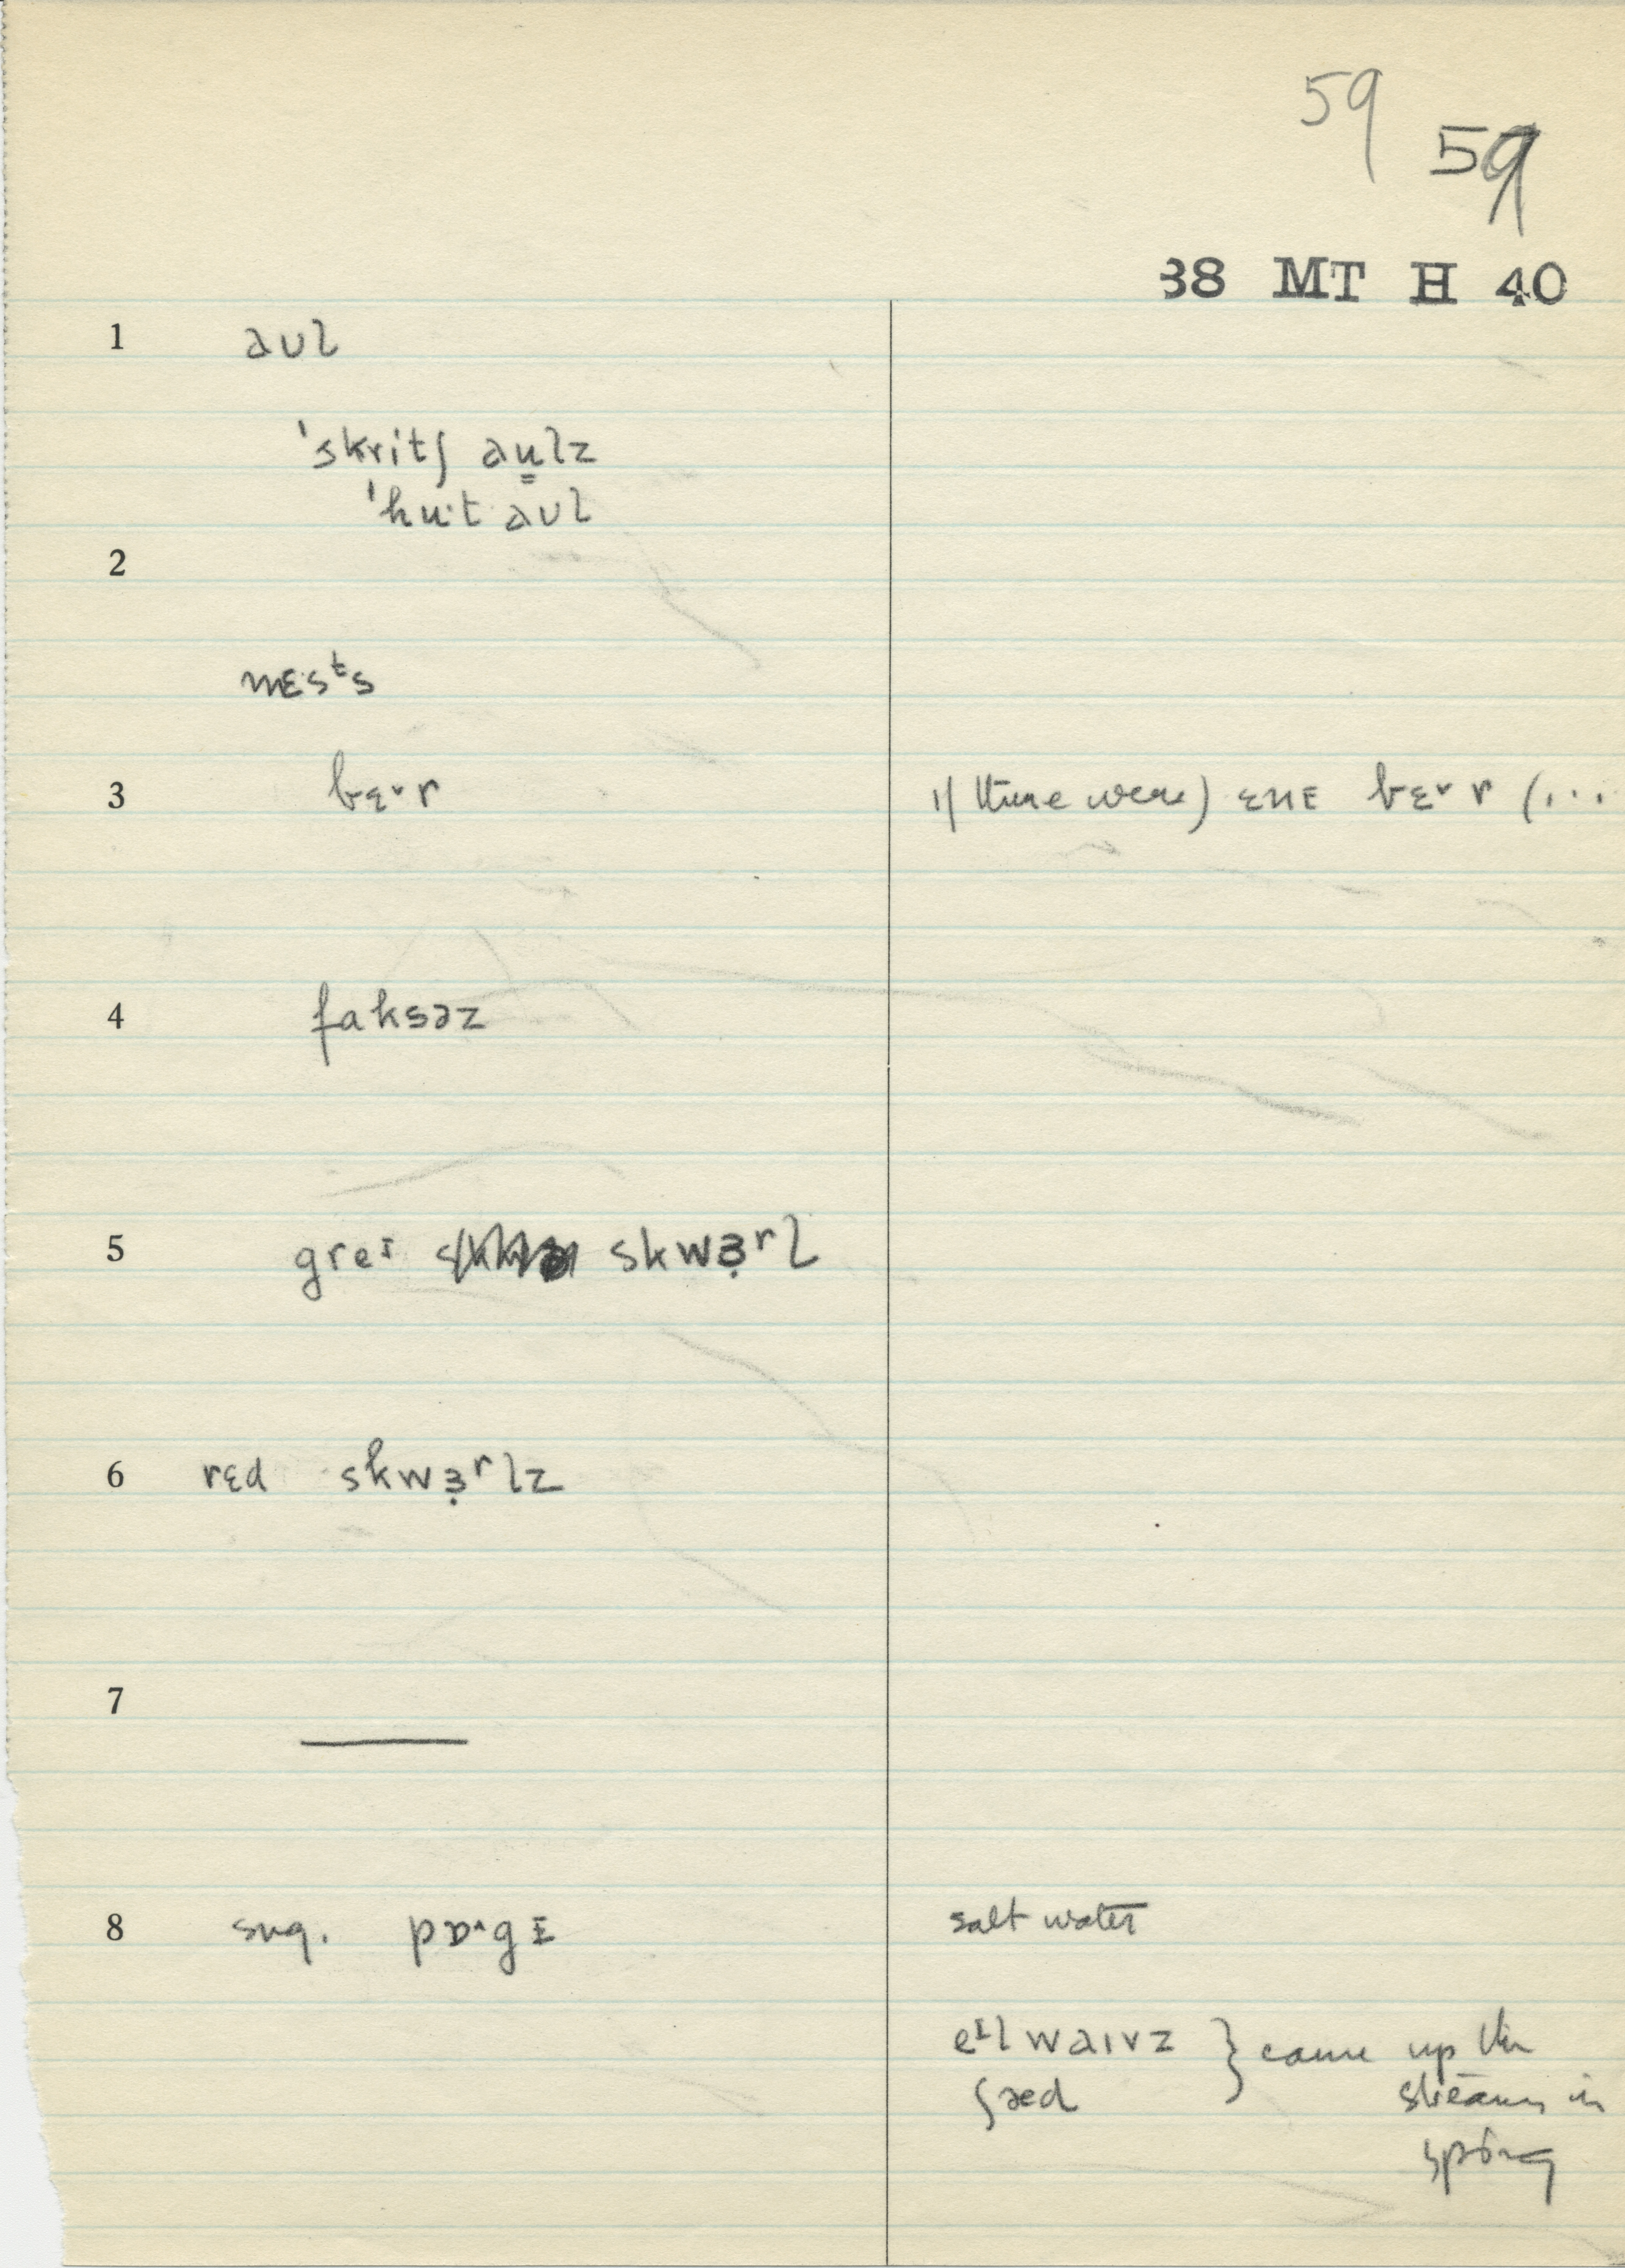 59 59
38 MT H 40
1 aʊl
ˈskritʃ au̳lz
ˈhu·t aʊl
2
nɛsᵗs
3 bɛ˅r if there were) ɛnɛ bɛ˅r (...
4 faksəz
5 greɪ skwɜ̣ʳl
6 rɛd skwɜ̣ʳlz
7
8 sug. pɒ˄gɪ salt water
eᴵl waɪvz } came up the
ʃæd streams in
spring